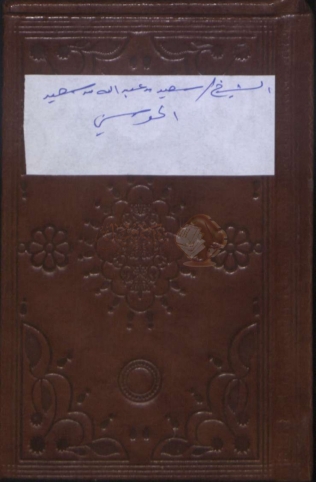 الشيخ/ سعيد بن عبدالله بن سعيد
الحوسني